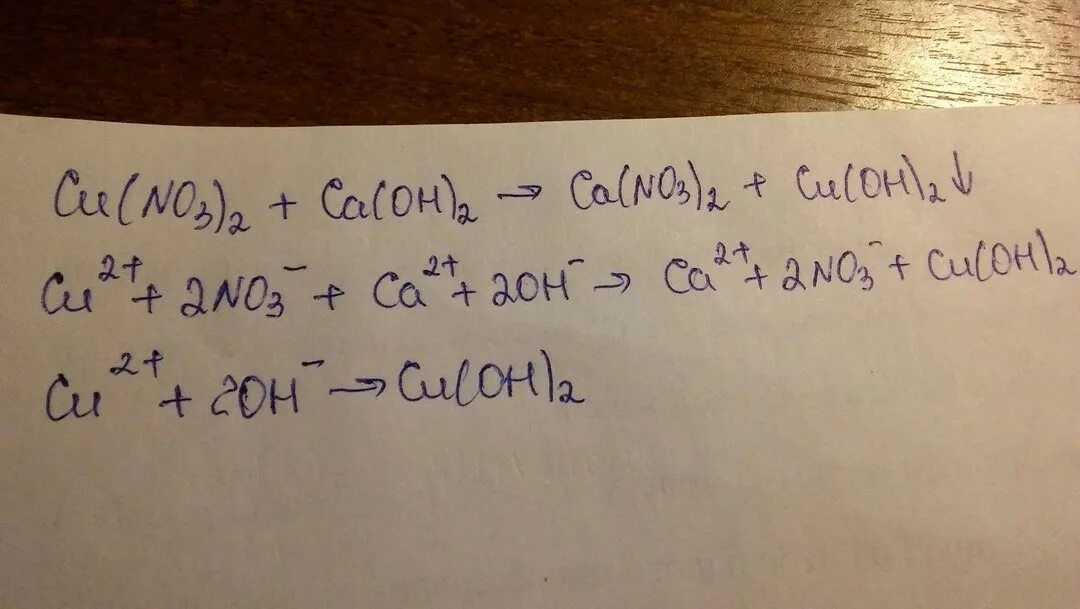 Cu(NO₃)₂ + Ca(OH)₂ → Ca(NO₃)₂ + Cu(OH)₂↓
Cu²⁺ + 2NO₃⁻ + Ca²⁺ + 2OH⁻ → Ca²⁺ + 2NO₃⁻ + Cu(OH)₂
Cu²⁺ + 2OH⁻ → Cu(OH)₂